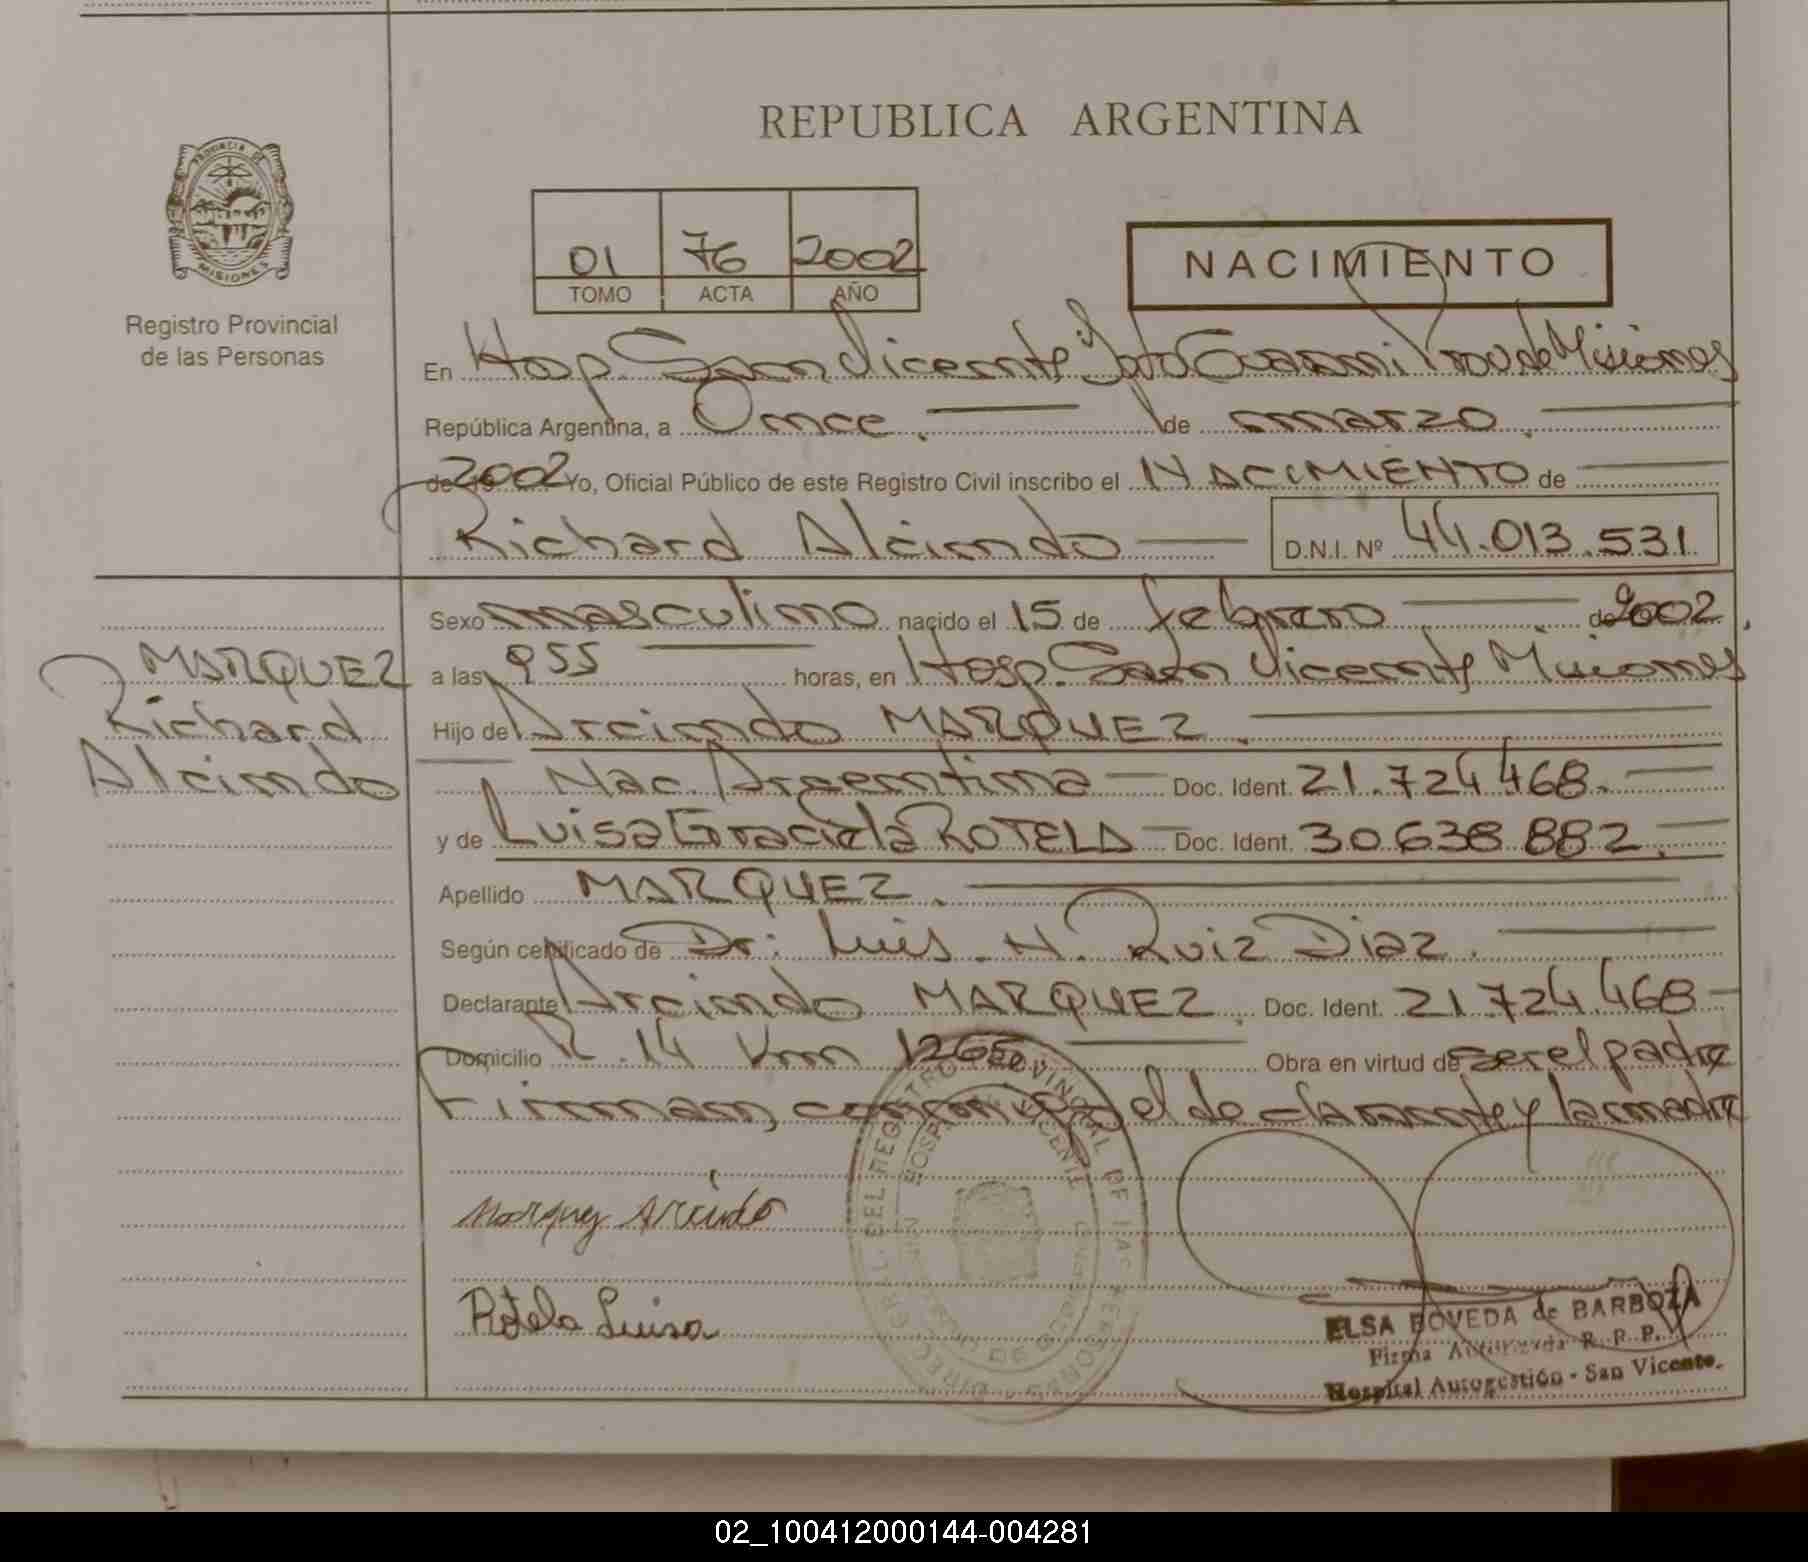 REPUBLICA ARGENTINA
PROVINCIA DE
MISIONES
Registro Provincial
de las Personas
01 76 2002
TOMO ACTA AÑO
NACIMIENTO
En Hosp. San Vicente Gpto Guarani Prov de Misiones
República Argentina, a Once. de marzo.
de 2002 Yo, Oficial Público de este Registro Civil inscribo el NACIMIENTO de
Richard Alcindo D.N.I. Nº 44.013.531
Sexo masculino nacido el 15 de febrero de 2002.
MARQUEZ
Richard
Alcindo
a las 955 horas, en Hosp. San Vicente Misiones
Hijo de Arcindo MARQUEZ.
Nac. Argentina Doc. Ident. 21.724.468.
y de Luisa Graciela ROTELA Doc. Ident. 30.638.882.
Apellido MARQUEZ.
Según certificado de Dr: Luis. H. Ruiz Diaz.
Declarante Arcindo MARQUEZ. Doc. Ident. 21.724.468
Domicilio R. 14 Km 1265 Obra en virtud de ser el padre
Firman, conmigo el declarante y la madre
Marquez Arcindo
Rotela Luisa
DEL REGISTRO PROVINCIAL DE LAS PERSONAS
HOSPITAL VICENTE
ELSA BOVEDA de BARBOZA
Firma Autorizada R. P. P.
Hospital Autogestión - San Vicente.
02_100412000144-004281